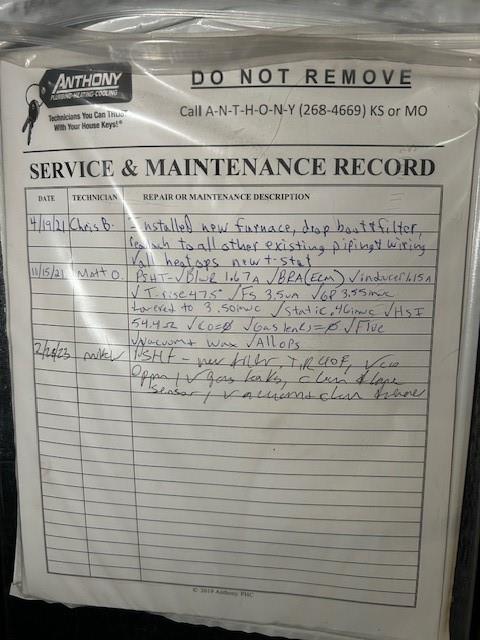 ANTHONY
PLUMBING·HEATING·COOLING
Technicians You Can Trust
With Your House Keys!®
DO NOT REMOVE
Call A-N-T-H-O-N-Y (268-4669) KS or MO
SERVICE & MAINTENANCE RECORD
DATE TECHNICIAN REPAIR OR MAINTENANCE DESCRIPTION
4/19/21 Chris B. - Installed new furnace, drop boot & filter,
to all other existing piping & wiring
√ all heat ops new t-stat
11/15/21 Matt O. PSHT- √ BLWR 1.67a √ BRA (Ecm) √ inducer 1.15A
√ T-rise 47.5° √ FS 3.5ua √ GP 3.55inwc
lowered to 3.50inwc √ static .46inwc √ HSI
54.4Ω √ CO=Ø √ Gas leaks=Ø √ Flue
√ Vacuum & wax √ All ops
2/24/23 - new filter, T.R 40F, √ co
0ppm, √ gas leaks, clean flame
sensor, vacuum & clean
© 2019 Anthony PHC